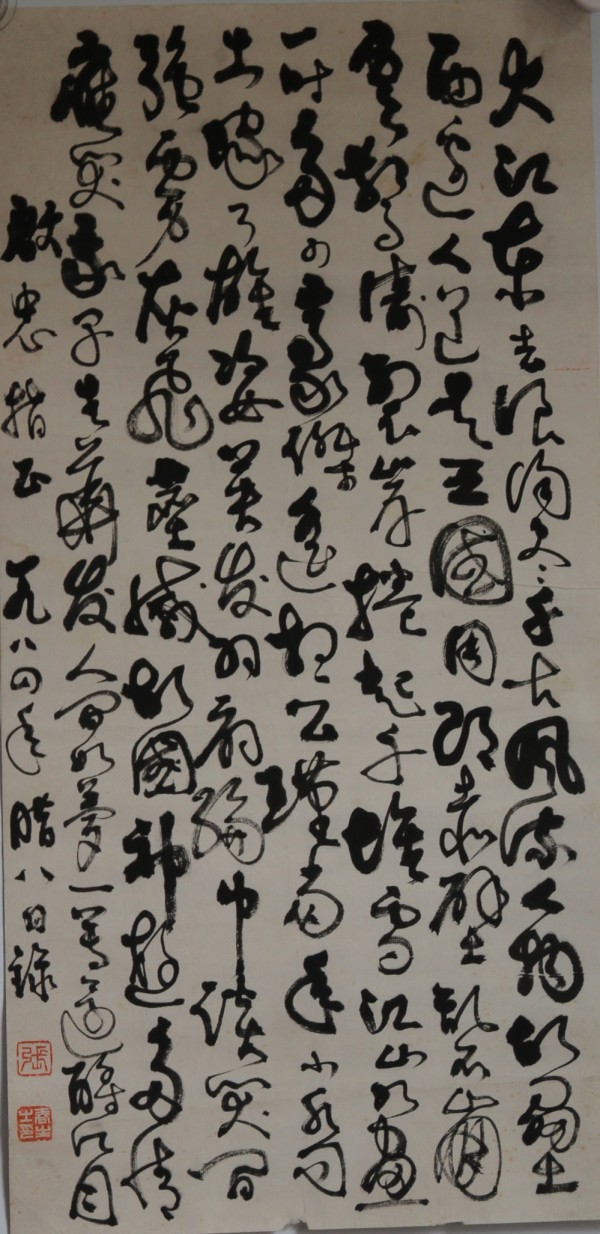 大江東去浪淘盡千古風流人物故壘
西邊人道是三國周郎赤壁亂石崩
雲驚濤裂岸捲起千堆雪江山如畫
一時多少豪傑遙想公瑾當年小喬
初嫁了雄姿英發羽扇綸巾談笑間
強虜灰飛煙滅故國神遊多情
應笑我早生華發人間如夢一尊還酹江月
忠指正 一九八四年腊八日錄
張